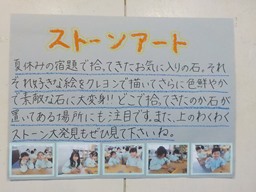 ストーンアート
夏休みの宿題で拾ってきたお気に入りの石。それ
ぞれ好きな絵をクレヨンで描いてさらに色鮮やか
で素敵な石に大変身!!どこで拾ってきたのか石が
置いてある場所にも注目です。また、上のわくわく
ストーン大発見もぜひ見て下さいね。